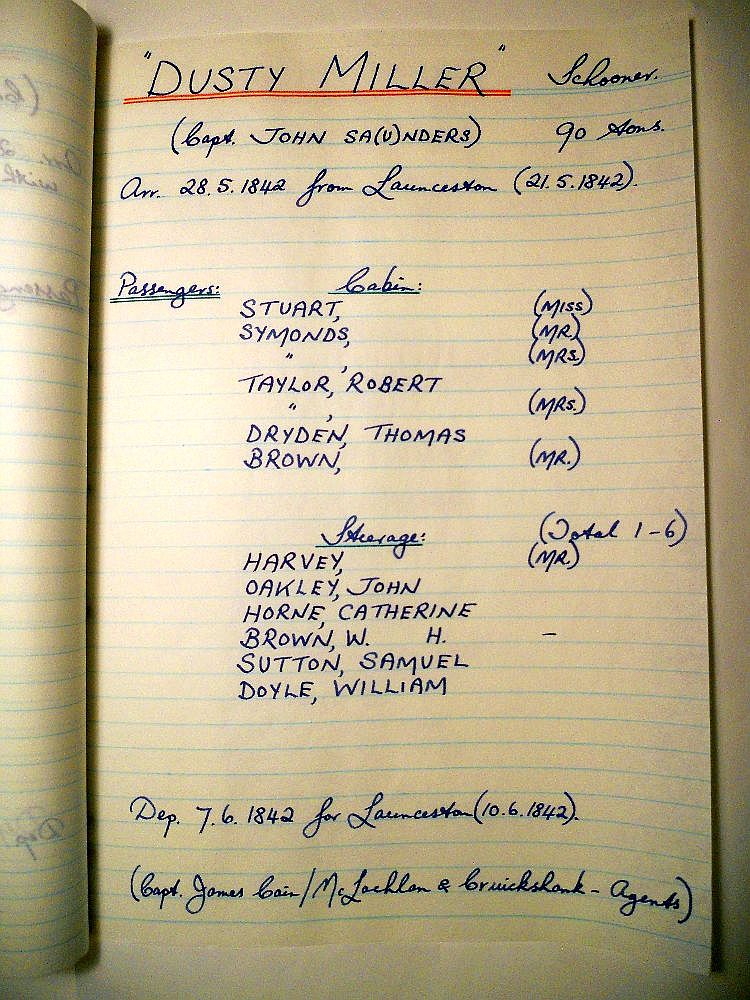 "DUSTY MILLER" Schooner.
(Capt. JOHN SA(U)NDERS) 90 tons.
Arr. 28.5.1842 from Launceston (21.5.1842).
Passengers: Cabin:
STUART, (MISS)
SYMONDS, (MR.)
" , (MRS.)
TAYLOR, ROBERT
" , (MRS.)
DRYDEN, THOMAS
BROWN, (MR.)
Steerage: (Total 1-6)
HARVEY, (MR.)
OAKLEY, JOHN
HORNE, CATHERINE
BROWN, W. H. –
SUTTON, SAMUEL
DOYLE, WILLIAM
Dep. 7.6.1842 for Launceston (10.6.1842).
(Capt. James Cain/McLachlan & Cruickshank - Agents)